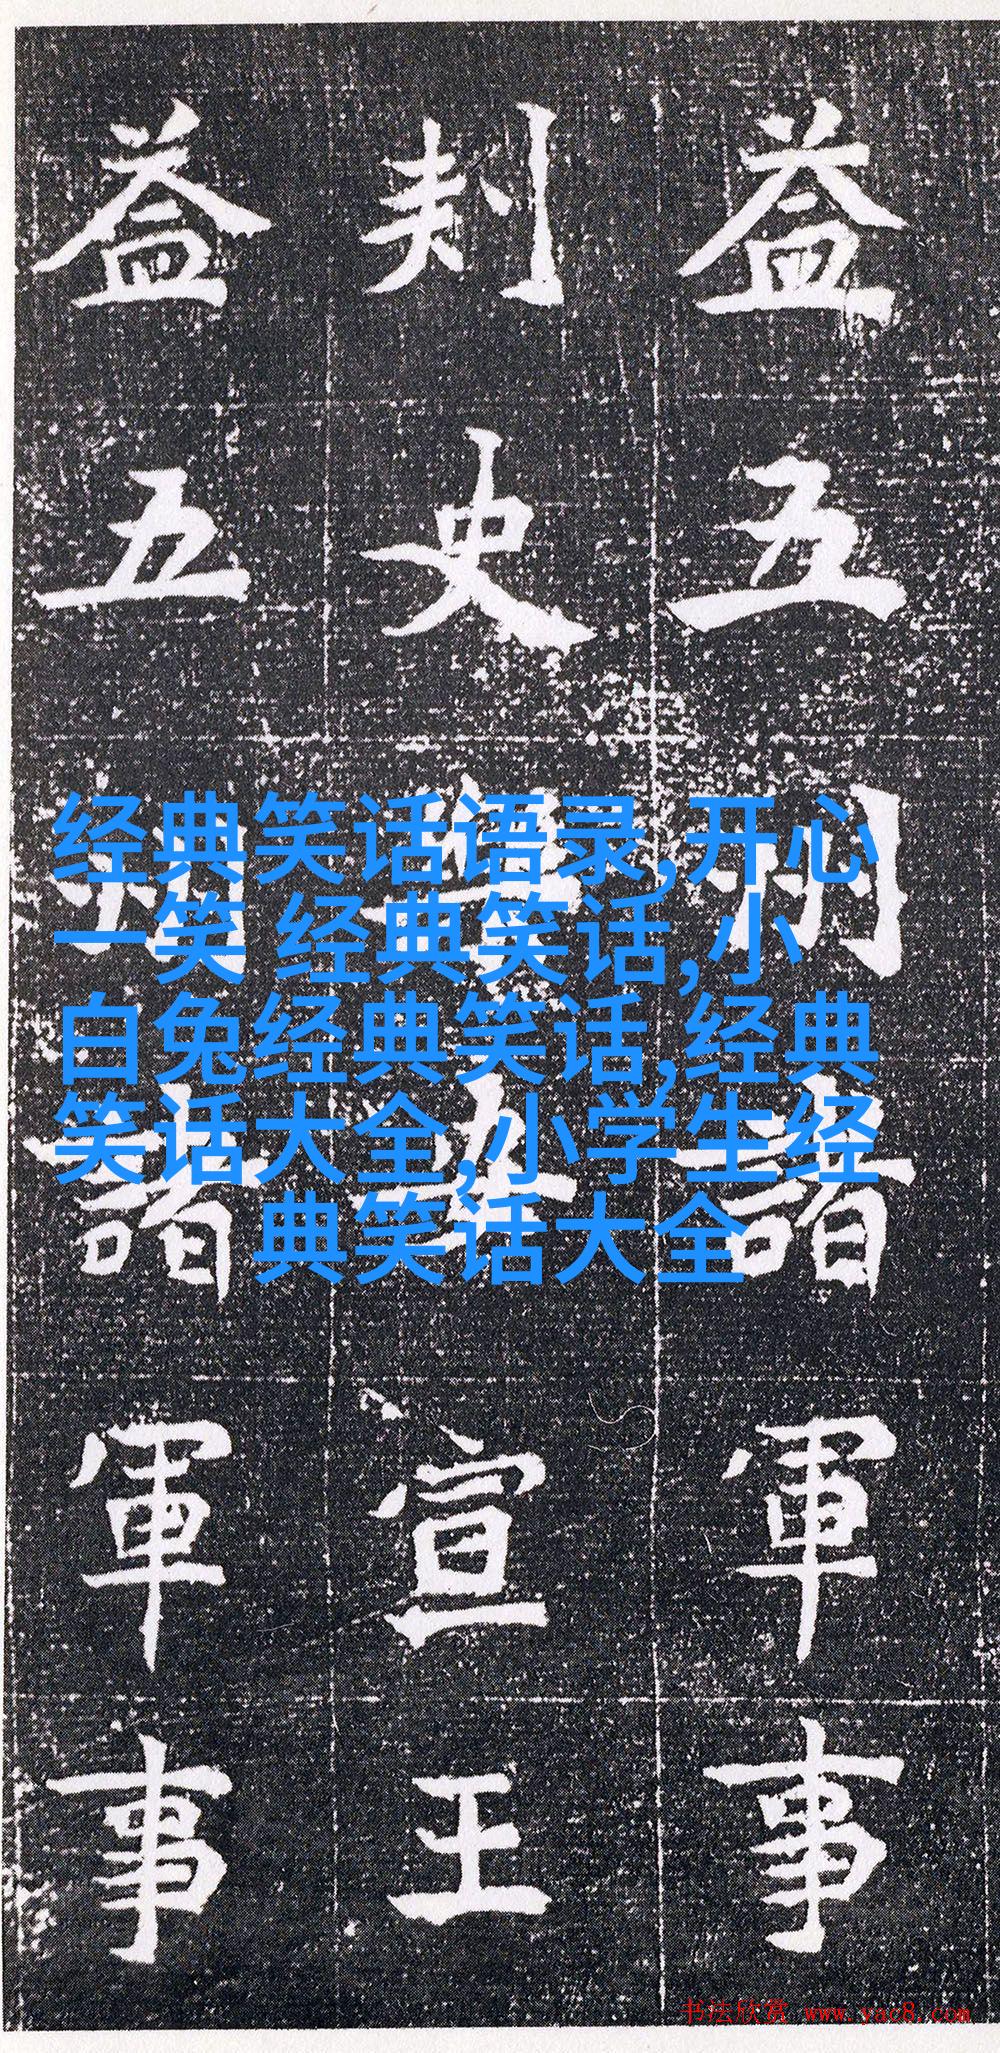 益五州諸軍事
刾史宣王
益五州諸軍事
经典笑话语录,开心
一笑 经典笑话,小
白兔经典笑话,经典
笑话大全,小学生经
典笑话大全
书法欣赏 www.yac8.com